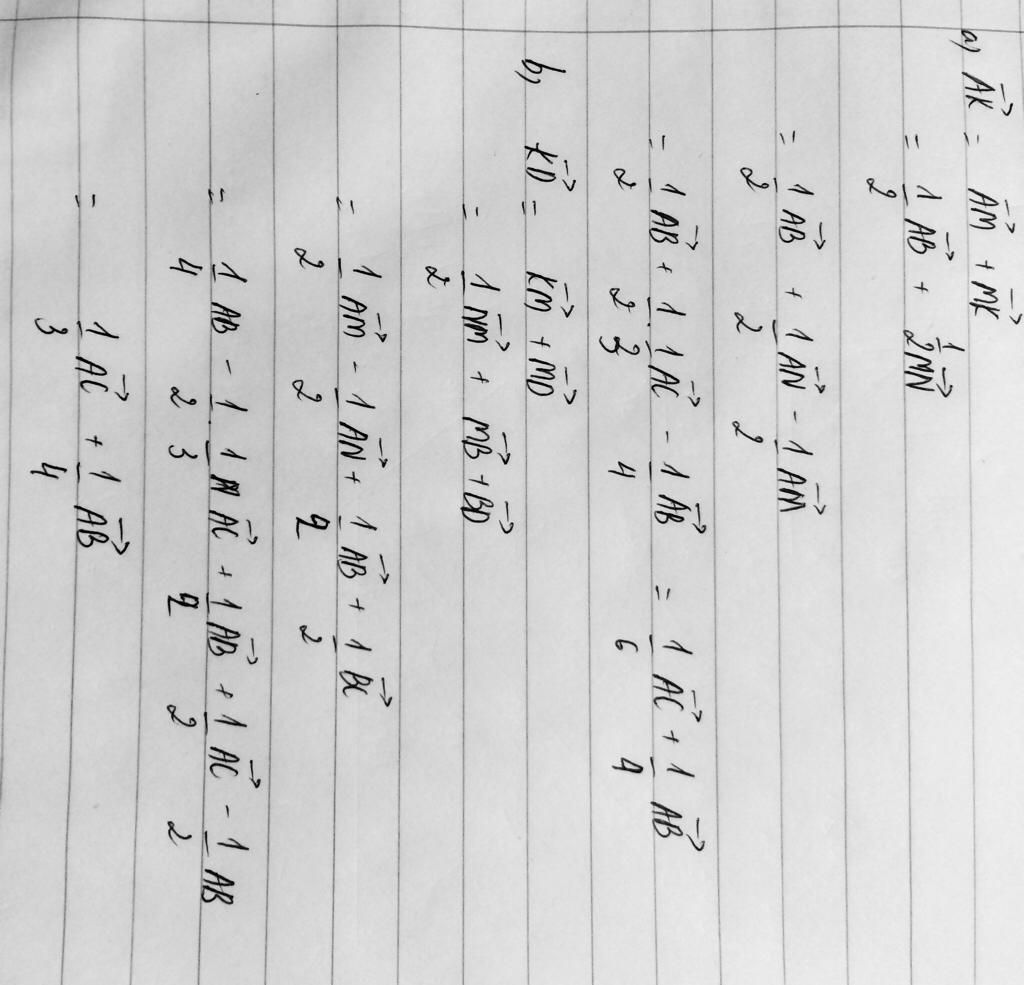 a) AK→ = AM→ + MK→
= 1/2 AB→ + 1/2 MN→
= 1/2 AB→ + 1/2 AN→ - 1/2 AM→
= 1/2 AB→ + 1/2 . 1/3 AC→ - 1/4 AB→ = 1/6 AC→ + 1/4 AB→
b, KD→ = KM→ + MD→
= 1/2 NM→ + MB→ + BD→
= 1/2 AM→ - 1/2 AN→ + 1/2 AB→ + 1/2 BC→
= 1/4 AB - 1/2 . 1/3 AC→ + 1/2 AB→ + 1/2 AC→ - 1/2 AB
= 1/3 AC→ + 1/4 AB→